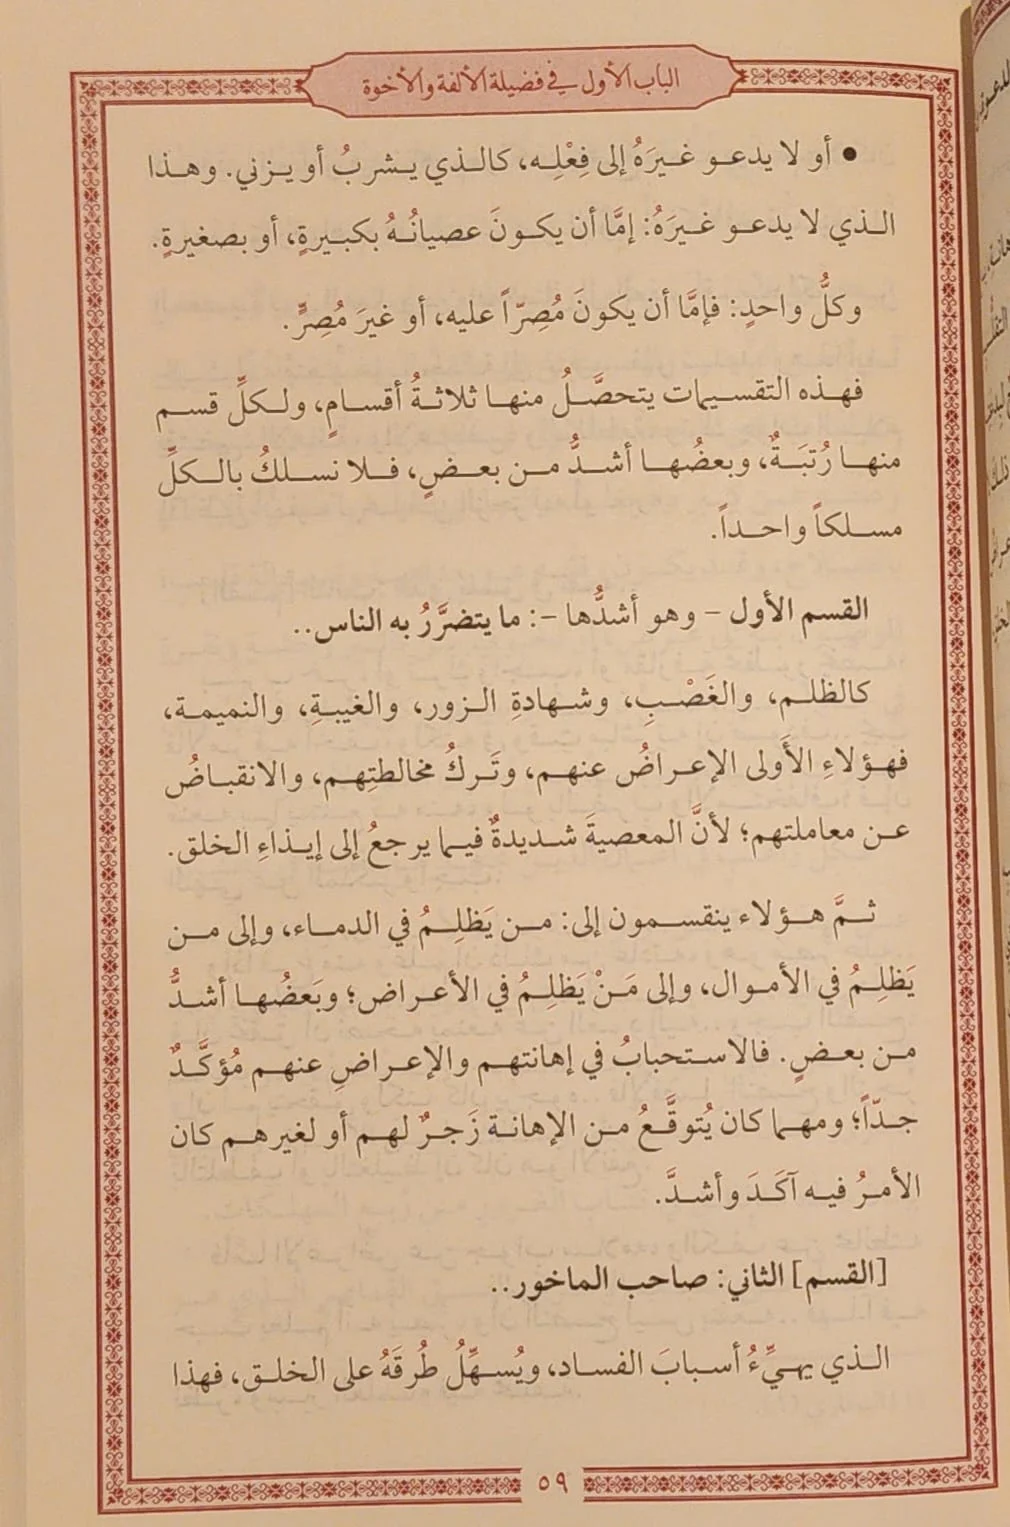 الباب الأول في فضيلة الألفة والأخوة
• أو لا يدعو غيرَهُ إلى فِعْلِه، كالذي يشربُ أو يزني. وهذا
الذي لا يدعو غيرَهُ: إمَّا أن يكونَ عصيانُهُ بكبيرةٍ، أو بصغيرةٍ.
وكلُّ واحدٍ: فإمَّا أن يكونَ مُصِرّاً عليه، أو غيرَ مُصِرٍّ.
فهذه التقسيمات يتحصَّلُ منها ثلاثةُ أقسامٍ، ولكلِّ قسم
منها رُتبَةٌ، وبعضُها أشدُّ من بعضٍ، فلا نسلكُ بالكلِّ
مسلكاً واحداً.
القسم الأول - وهو أشدُّها -: ما يتضرَّرُ به الناس..
كالظلم، والغَصْبِ، وشهادةِ الزور، والغيبةِ، والنميمة،
فهؤلاءِ الأَولى الإعراضُ عنهم، وتَركُ مخالطتِهم، والانقباضُ
عن معاملتهم؛ لأنَّ المعصيةَ شديدةٌ فيما يرجعُ إلى إيذاءِ الخلق.
ثمَّ هؤلاء ينقسمون إلى: من يَظلِمُ في الدماء، وإلى من
يَظلِمُ في الأموال، وإلى مَنْ يَظلِمُ في الأعراض؛ وبَعضُها أشدُّ
من بعضٍ. فالاستحبابُ في إهانتهم والإعراضِ عنهم مُؤكَّدٌ
جدّاً؛ ومهما كان يُتوقَّعُ من الإهانة زَجرٌ لهم أو لغيرهم كان
الأمرُ فيه آكَدَ وأشدَّ.
[القسم] الثاني: صاحب الماخور..
الذي يهيِّءُ أسبابَ الفساد، ويُسهِّلُ طُرقَهُ على الخلق، فهذا
٥٩